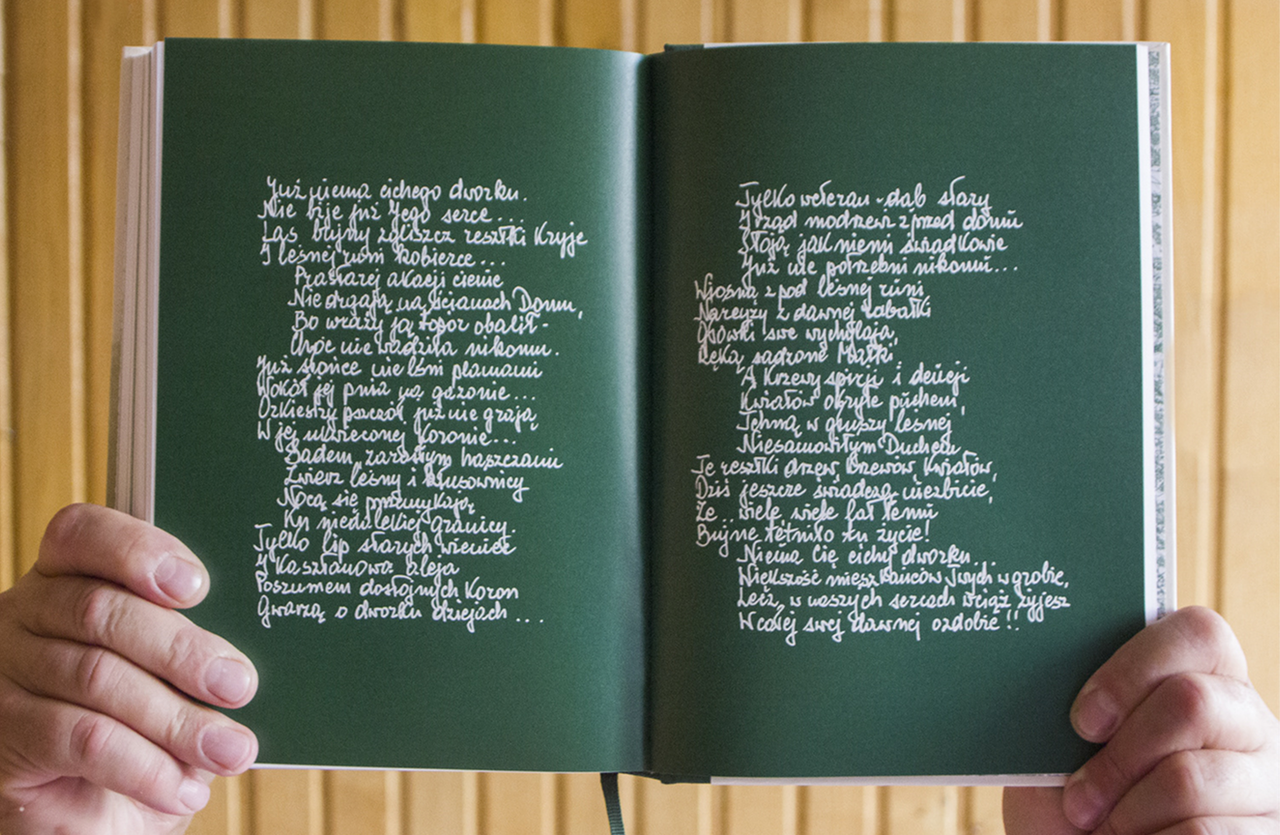 Już niema cichego dworku.
Nie bije już Jego serce...
Las bujny zgliszcz resztki Kryje
I leśnej runi kobierce...
Prastarej akacji cienie
Nie drgają na ścianach Domu,
Bo wraży ją topór obalił-
Choć nie wadziła nikomu.
Już słońce nie lśni plamami
Wokół jej pnia na gazonie...
Orkiestry pszczół już nie grają
W jej ukwieconej Koronie...
Sadem zarosłym chaszczami
Zwierz leśny i Kłusownicy
Nocą się przemykają
Ku niedalekiej granicy.
Tylko lip starych wieniec
I Kasztanowa aleja
Poszumem dostojnych Koron
Gwarzą o dworku dziejach...
Tylko weteran-dąb stary
I rząd modrzewi z przed domu
Stoją jak niemi świadkowie
Już nie potrzebni nikomu...
Wiosną z pod leśnej runi
Narcyzy z dawnej rabatki
Główki swe wychylają,
Ręką sadzone Matki
A Krzewy spirei i deucji
Kwiatów okryte puchem,
Tchną w głuszy leśnej
Niesamowitym Duchem
Te resztki drzew, Krzewów, Kwiatów,
Dziś jeszcze świadczą niezbicie,
Że wiele wiele lat temu
Bujne tętniło tu życie!
Niema Cię cichy dworku...
Większość mieszkańców Twych w grobie,
Lecz, w naszych sercach wciąż żyjesz
W całej swej dawnej ozdobie!!